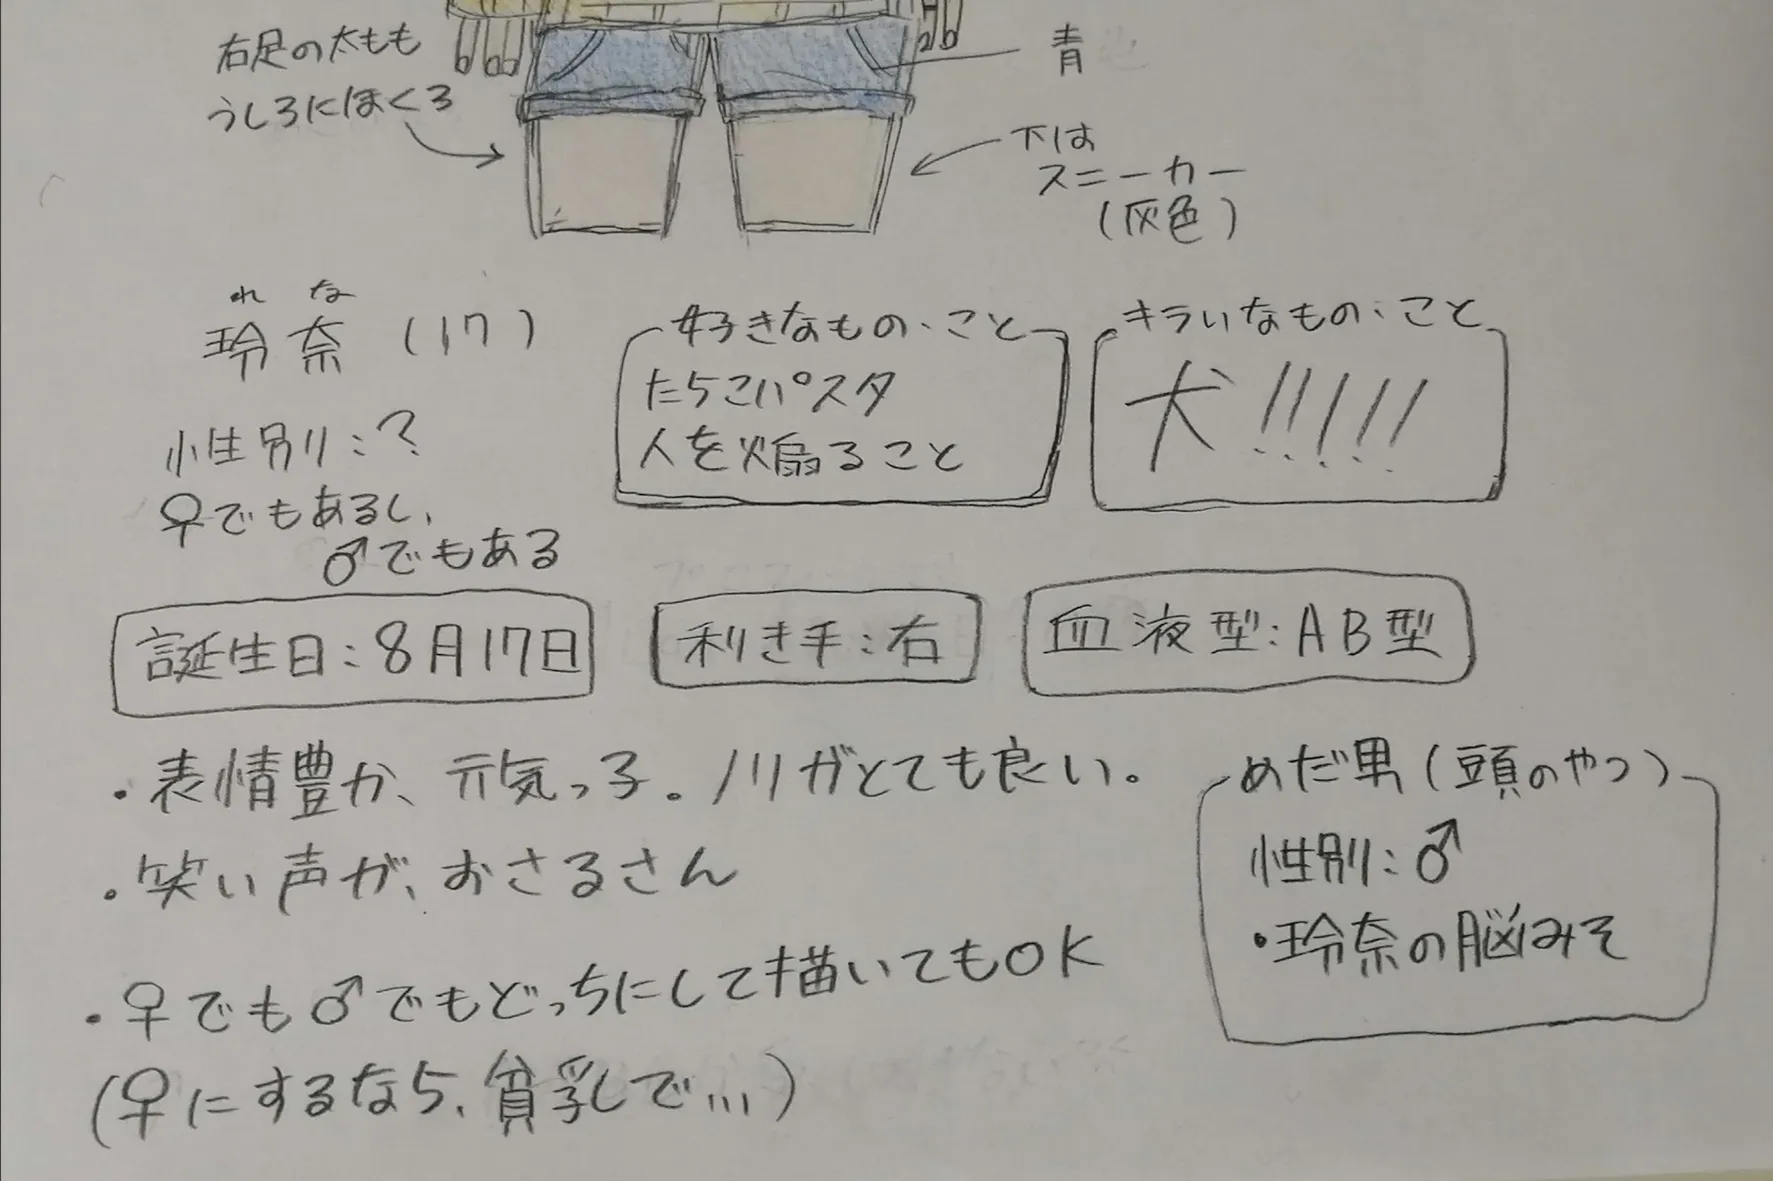 右足の太もも
うしろにほくろ
青
下は
スニーカー
(灰色)
れな
玲奈(17)
性別:?
♀でもあるし、
♂でもある
好きなもの・こと
たらこパスタ
人を煽ること
キライなもの・こと
犬!!!!!
誕生日:8月17日
利き手:右
血液型:AB型
・表情豊か、元気っ子。ノリがとても良い。
・笑い声が、おさるさん
・♀でも♂でもどっちにして描いてもOK
(♀にするなら、貧乳で...)
めだ男(頭のやつ)
性別:♂
・玲奈の脳みそ